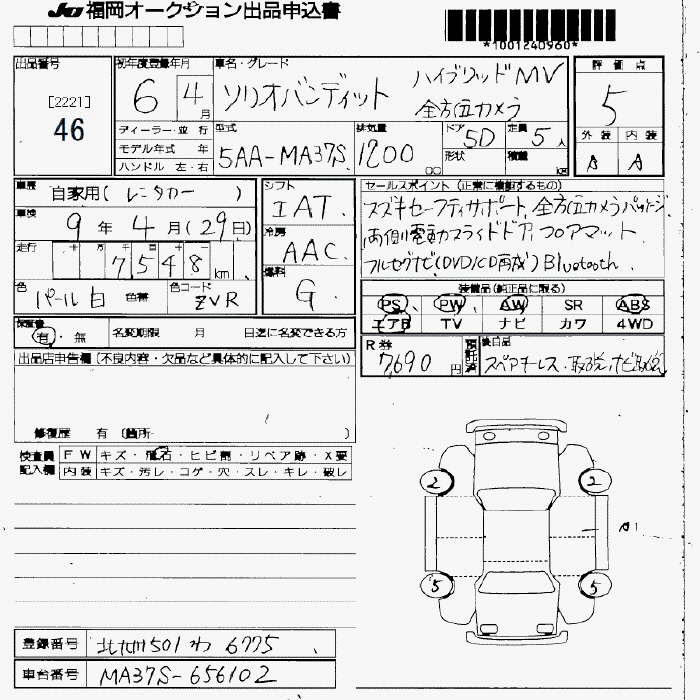 JU 福岡オークション出品申込書
*1001240960*
出品番号
[2221]
46
初年度登録年月
6 4月
車名・グレード
ソリオバンディット ハイブリッドMV
全方位カメラ
評価点
5
外装 内装
A A
ディーラー・並 行
モデル年式 年
ハンドル 左・右
型式
5AA-MA37S
排気量
1200 cc
ドア 5D
形状
定員 5人
積載 kg
車歴 自家用(レンタカー )
車検 9年 4月(29日)
走行 十 万 千 百 十
7548km
色 パール白 色替
色コード ZVR
シフト
IAT
冷房
AAC
燃料
G
セールスポイント(正常に機能するもの)
スズキセーフティサポート、全方位カメラパッケージ、
両側電動スライドドア フロアマット
フルセグナビ(DVD/CD再成)Bluetooth
装備品(純正品に限る)
PS PW AW SR ABS
エアB TV ナビ カワ 4WD
保証書
有・無
名変期限 月 日迄に名変できる方
R券
7,690円
預託済
後日品
スペアキーレス・取説、ナビ取説
出品店申告欄(不良内容・欠品など具体的に記入して下さい)
修復歴 有 (箇所 )
検査員記入欄
FW キズ・飛石・ヒビ割・リペア跡・X要
内装 キズ・汚レ・コゲ・穴・スレ・キレ・破レ
2 2
A1
5 5
登録番号 北九州501 わ 6775
車台番号 MA37S-656102